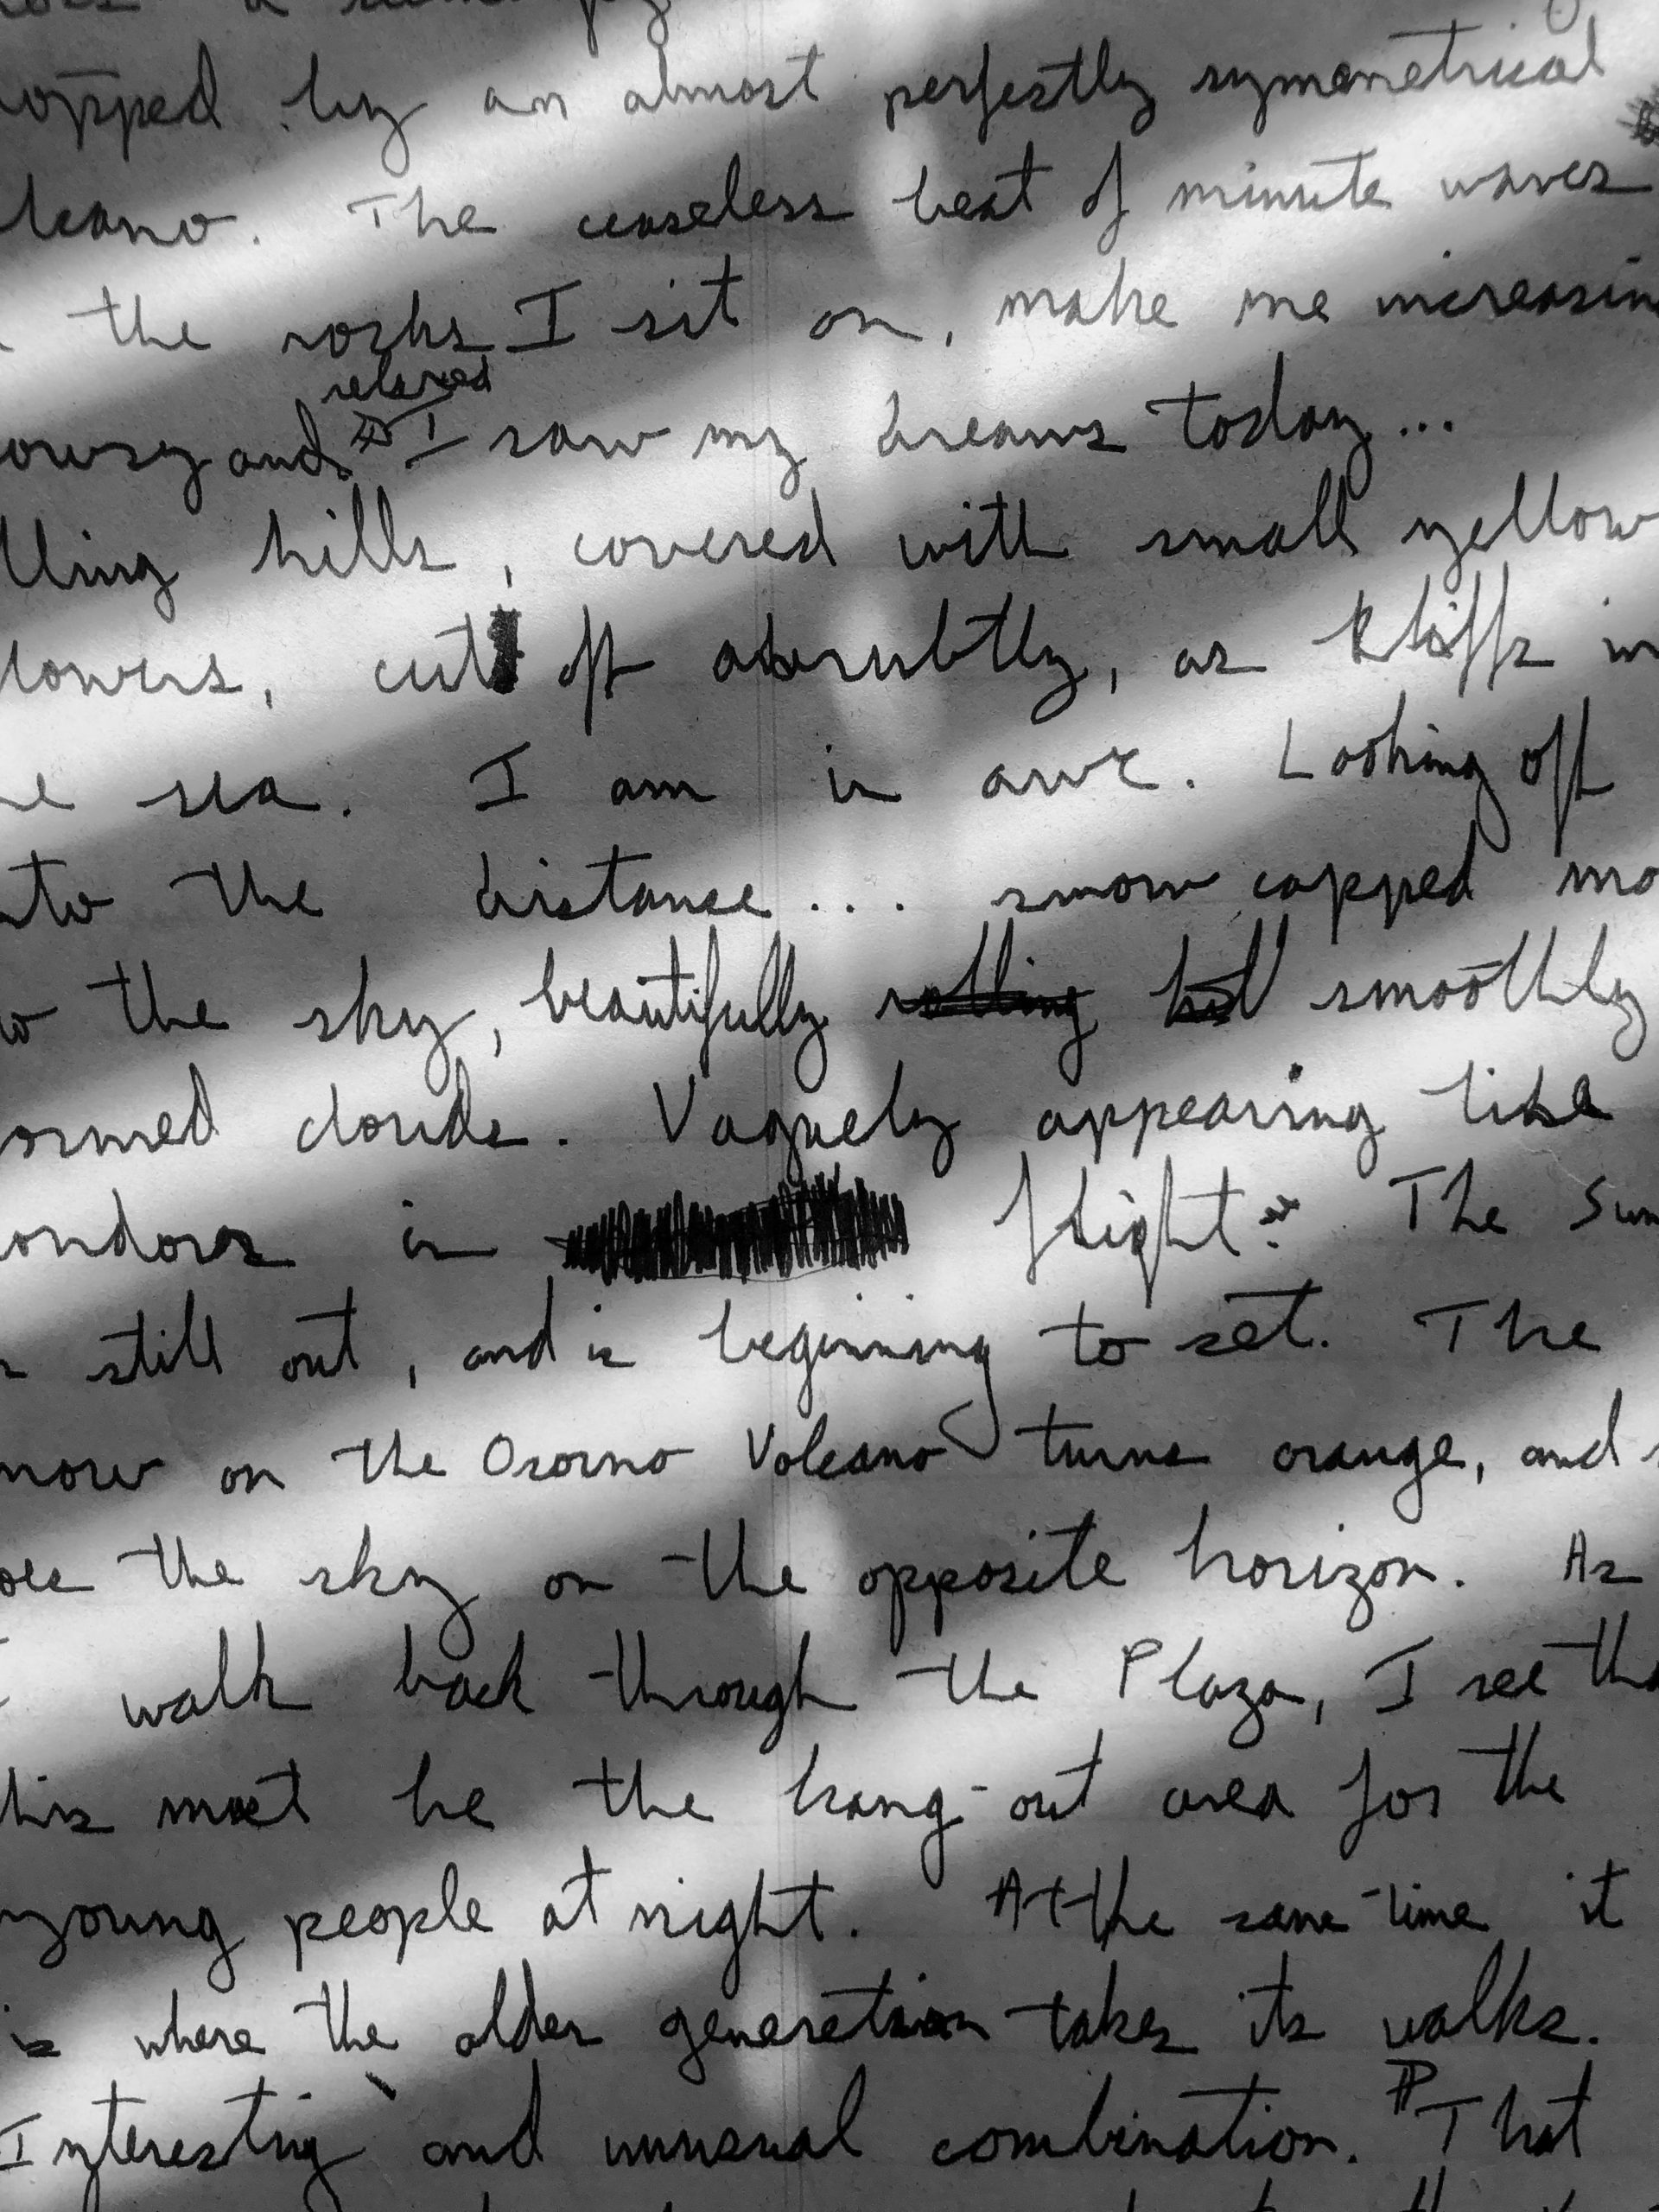 opped by an almost perfectly symmetrical
lcano. The ceaseless beat of minute waves
the rocks I sit on, make me increasin
relaxed
owsy and I saw my dreams today...
lling hills, covered with small yellow
lowers, cut off abrubtly, as kliffs in
e sea. I am in awe. Looking off
nto the distance... snow capped mo
o the sky, beautifully rolling hil smoothly
ormed clouds. Vaguely appearing like
ondores in flight. The Sun
still out, and is beginning to set. The
now on the Osorno Volcano turns orange, and s
oes the sky on the opposite horizon. As
I walk back through the Plaza, I see tha
his must be the hang-out area for the
young people at night. At the same time it
is where the older generation takes its walks.
Interesting and unusual combination. That